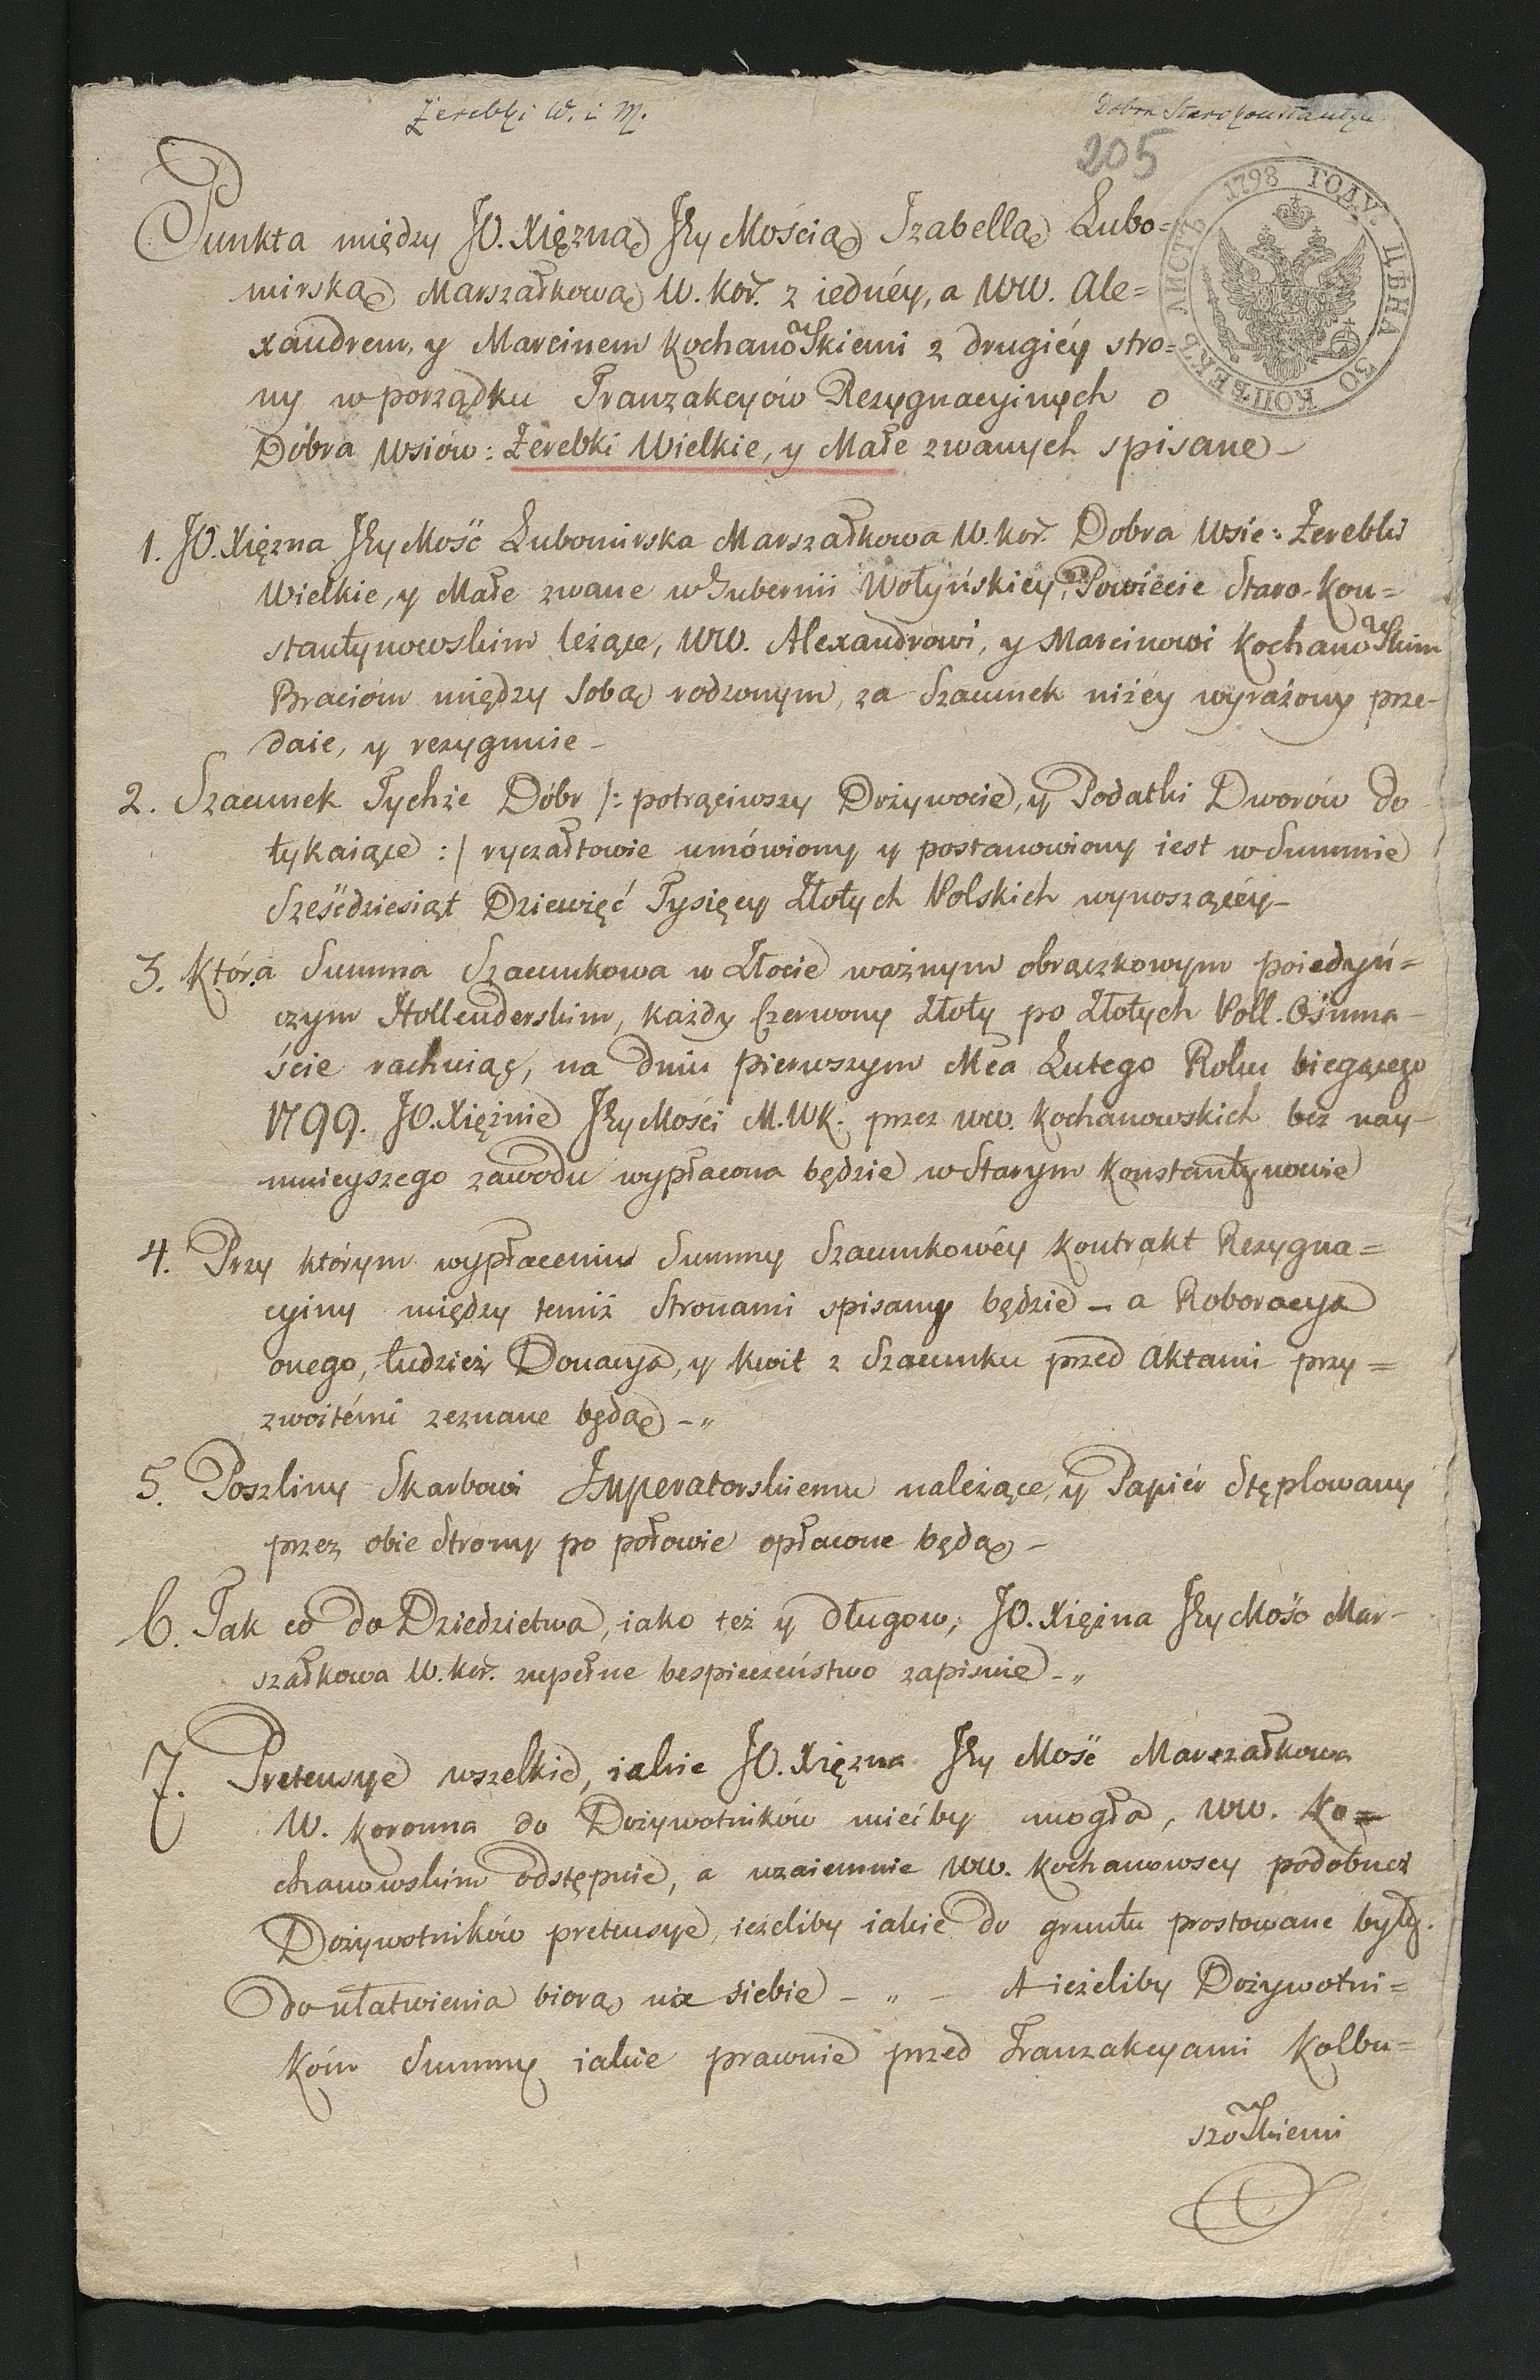 Żerebki W. i M.
Dobra Starokonstantyn.
205
1798 ГОДУ. ЦѢНА 30 КОПѢЕКЪ ЛИСТЪ
Punkta między JO. Xiężną JeyMością Izabellą Lubo=
mirską Marszałkową W. Kor. z iednéy, a WW. Ale=
xandrem, y Marcinem Kochanowskiemi z drugiéy stro=
ny w porządku Tranzakcyów Rezygnacyinych o
Dobra Wsiów: Żerebki Wielkie, y Małe zwanych spisane –
1. JO. Xiężna JeyMość Lubomirska Marszałkowa W. Kor. Dobra Wsie: Żerebki
Wielkie, y Małe zwane w Gubernii Wołyńskiéy, Powiécie Staro-Kon=
stantynowskim leżące, WW. Alexandrowi, y Marcinowi Kochanowskim
Braciom między Sobą rodzonym, za Szacunek niżéy wyrażony prze-
daie, y rezygnuie –
2. Szacunek Tychże Dóbr /: potrąciwszy Dożywocie, y Podatki Dworów do
tykaiące :/ ryczałtowie umówiony y postanowiony iest w Summie
Sześćdziesiąt Dziewięć Tysięcy Złotych Polskich wynoszącéy –
3. Która Summa Szacunkowa w Złocie ważnym obrączkowym poiedyń=
czym Hollenderskim, każdy Czerwony Złoty po Złotych Poll. Ośmna-
ście rachuiąc, na dniu pierwszym Mca Lutego Roku biegącego
1799. JO. Xiężnie JeyMości M. WK. przez WW. Kochanowskich bez nay-
mnieyszego zawodu wypłacona będzie w Starym Konstantynowie
4. Przy którym wypłaceniu Summy Szacunkowéy Kontrakt Rezygna=
cyiny między temiż Stronami spisany będzie – a Roboracya
onego, tudzież Donacya, y Kwit z Szacunku przed Aktami przy=
zwoitémi zeznane będą – „
5. Poszliny Skarbowi Imperatorskiemu należące, y Papiér Stęplowany
przez obie Strony po połowie opłacone będą –
6. Tak co do Dziedzictwa, iako też y długow, JO. Xiężna JeyMość Mar-
szałkowa W. Kor. zupełne bespieczeństwo zapisuie – „
7. Pretensye wszelkie, iakie JO. Xiężna Jey Mość Marszałkowa
W. Koronna do Dożywotników miećby mogła, WW. Ko=
chanowskim odstępuie, a wzaiemnie WW. Kochanowscy podobnéż
Dożywotników pretensye, ieżeliby iakie do gruntu prostowane były.
Do ułatwienia biorą na siebie – „ – A ieżeliby Dożywotni=
kóm Summy iakie prawnie przed Tranzakcyami Kolbu=
szowskiemi